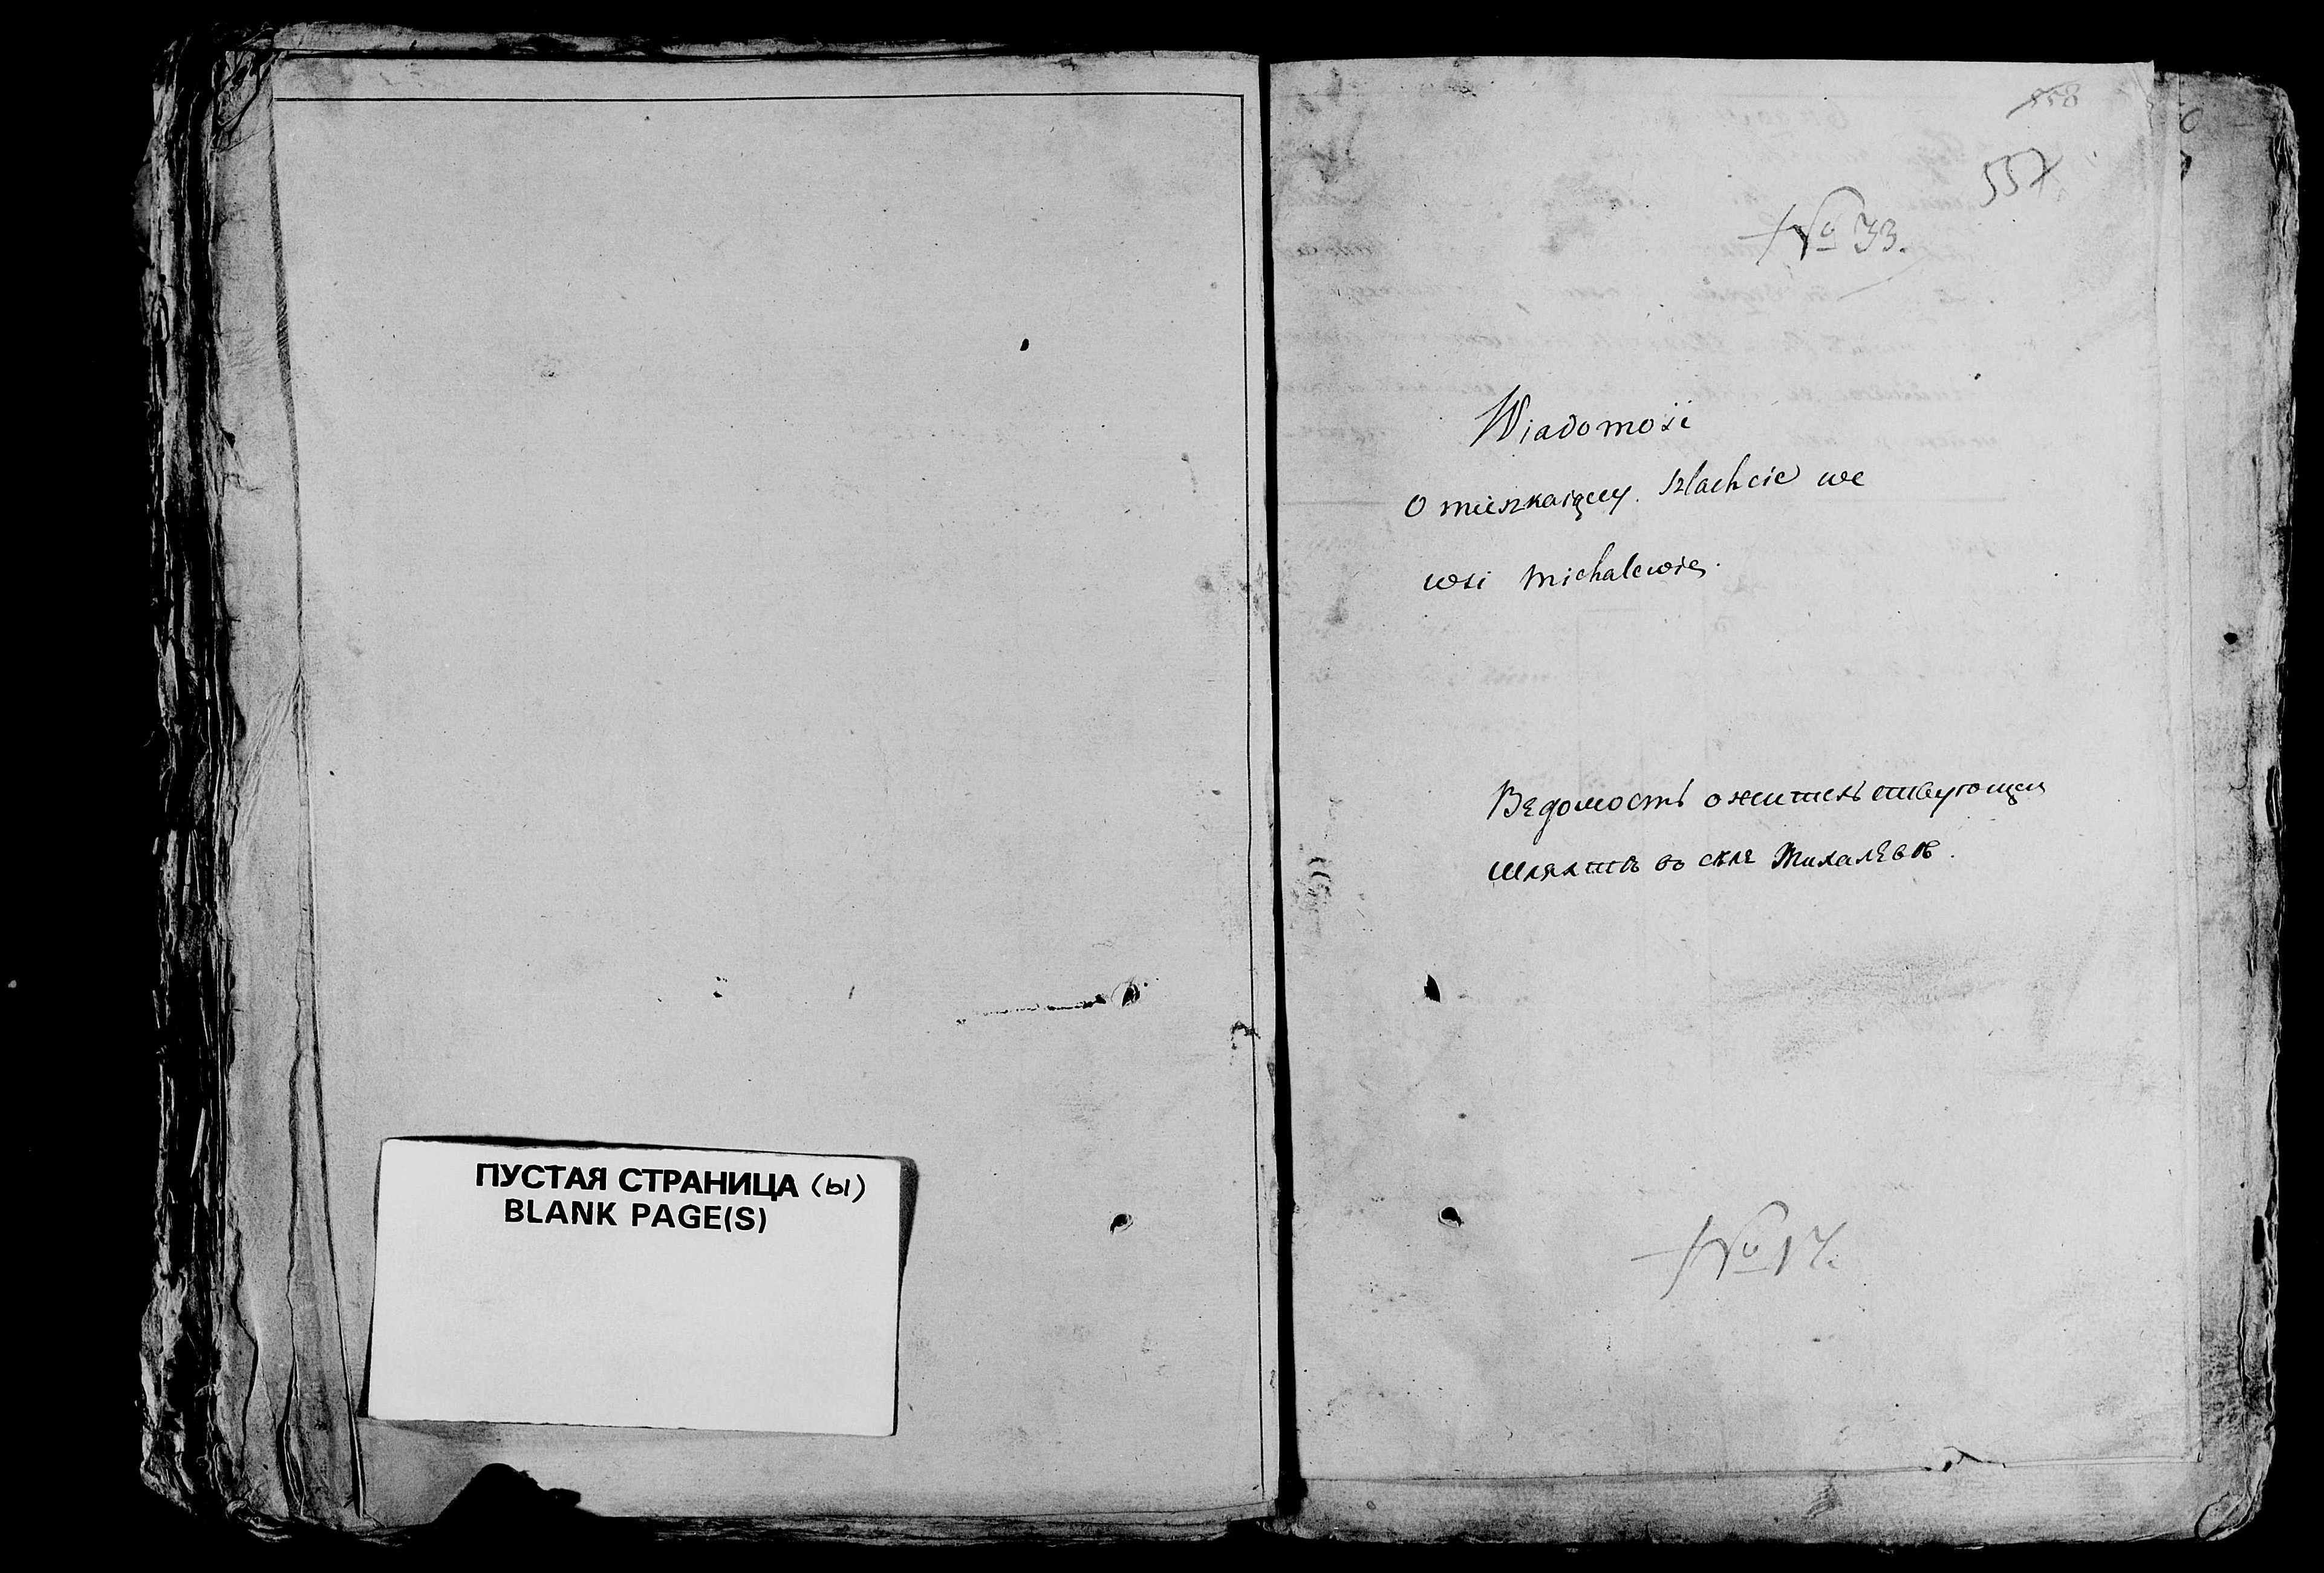 ПУСТАЯ СТРАНИЦА (Ы)
BLANK PAGE(S)
558
557
№ 33.
Wiadomość
O mieszkaiącey Szlachcie we
wsi Michalewie
Ведомость о жительствующей
шляхтѣ во селе Михалевѣ.
№ 17.